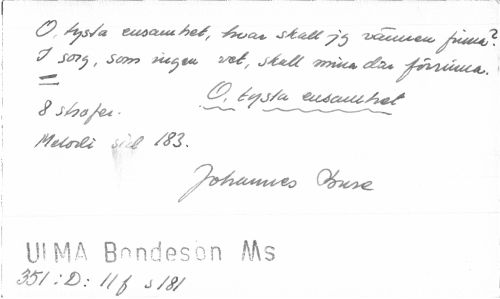 O, tysta ensamhet, hvar skall jg vännen finna?
I sorg, som ingen vet, skall mina dar förrinna.
O, tysta ensamhet
8 strofer.
Melodi sid 183.
Johannes
ULMA Bondeson Ms
351:D: 11 f s 181